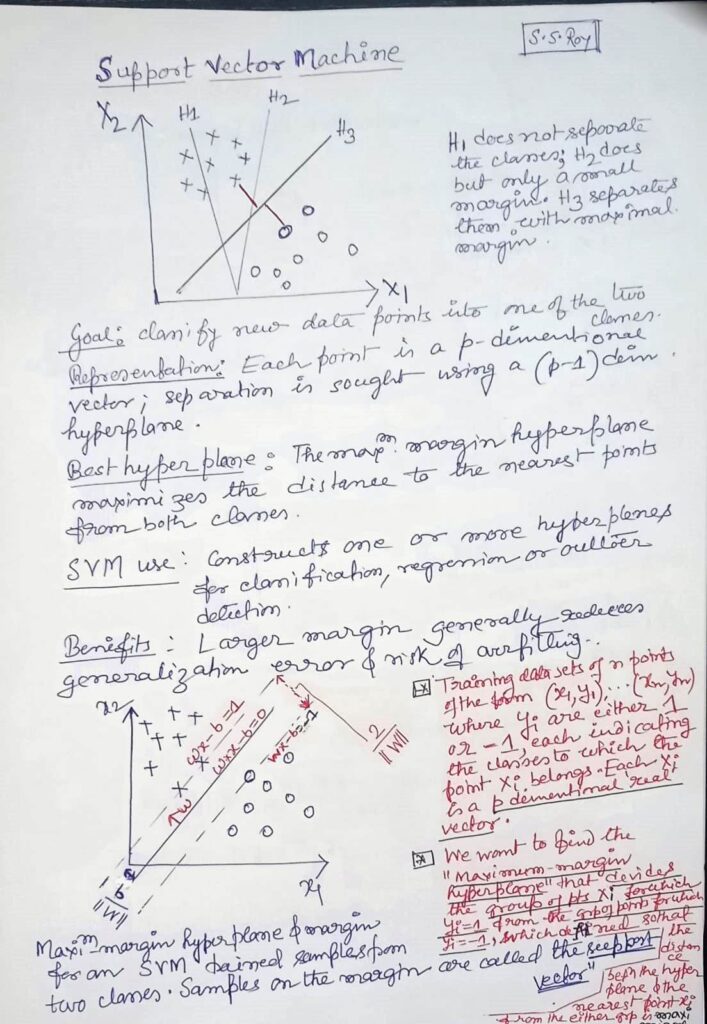 S.S. Roy
Support Vector Machine
X2
H1
H2
H3
X1
H1 does not sepoorate
the classes; H2 does
but only a small
margin. H3 separates
them with maximal
margin.
Goal: classify new data points into one of the two
classes.
Representation: Each point is a p-dimentional
vector; separation is sought using a (p-1) dim
hyperplane.
Best hyper plane: The maxm margin hyperplane
maximizes the distance to the nearest points
from both classes.
SVM use: Constructs one or more hyperplanes
for classification, regression or outlier
detection.
Benifits: Larger margin generally reduces
generalization error & risk of overfitting.
x2
wx-b=1
wxx-b=0
wx-b=-1
2
||W||
w
b
||W||
x1
Training data sets of n points
of the form (x1,y1),...(xn,yn)
where yi are either 1
or -1, each indicating
the classes to which the
point xi belongs. Each xi
is a p dimentional real
vector.
We want to find the
"Maximum-margin
hyperplane" that devides
the group of pts xi for which
yi=1 from the grp of points for which
yi=-1, which defined so that
the
distance
betn the hyper
plane & the
nearest point xi
from the either grp is maxi
Maxim-margin hyperplane & margin
for an SVM trained samples from
two classes. Samples on the margin are called the support
vector"